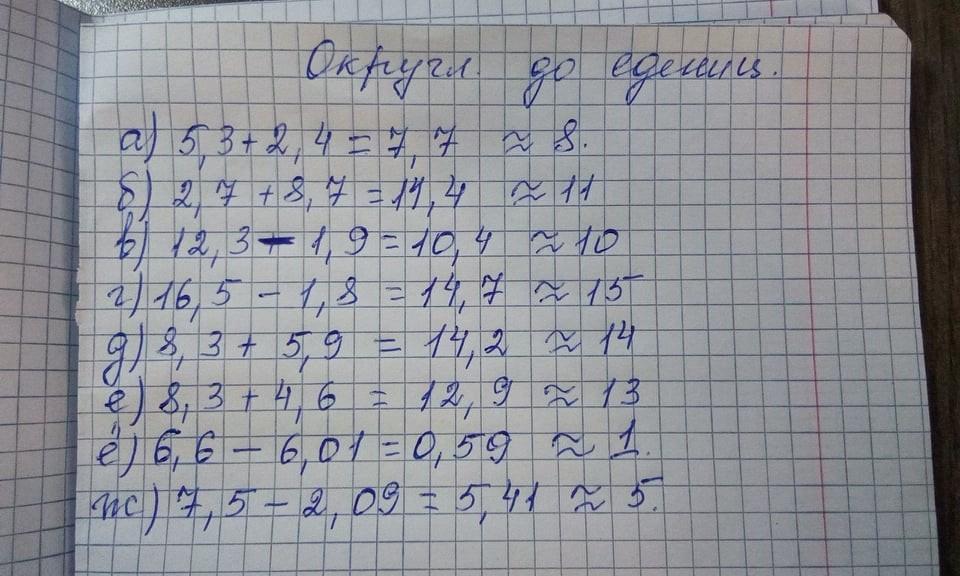 Округл. до едениц.
а) 5,3 + 2,4 = 7,7 ≈ 8.
б) 2,7 + 8,7 = 11,4 ≈ 11
в) 12,3 - 1,9 = 10,4 ≈ 10
г) 16,5 - 1,8 = 14,7 ≈ 15
д) 8,3 + 5,9 = 14,2 ≈ 14
е) 8,3 + 4,6 = 12,9 ≈ 13
ё) 6,6 - 6,01 = 0,59 ≈ 1.
ж) 7,5 - 2,09 = 5,41 ≈ 5.